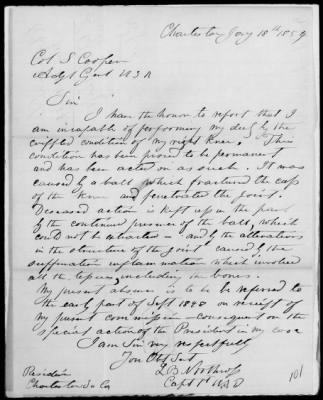 Charleston Jany 18th 1859
Col S Cooper
Adgt Genl USA
Sir
I have the honor to report that I
am incapable of performing my duty by the
crippled condition of my right knee. This
condition has been proved to be permanent
and has been acted on as such. It was
caused by a ball which fractured the cap
of the Knee and penetrated the joint.
Deceased action is kept up in the
of the continued presence of the ball, which
could not be extracted and by the alterations
in the structure of the joint caused by the
suppuration inflammation which involved
all the tissues, including the bones.
My present absence is to be referred to
the early part of Sept 1848 on receipt of
my present commission consequent on the
special action of the President in my case
I am Sir very respectfully
You Obt Svt
L B Northrop
Capt 1st
Residence
Charleston So Ca
101